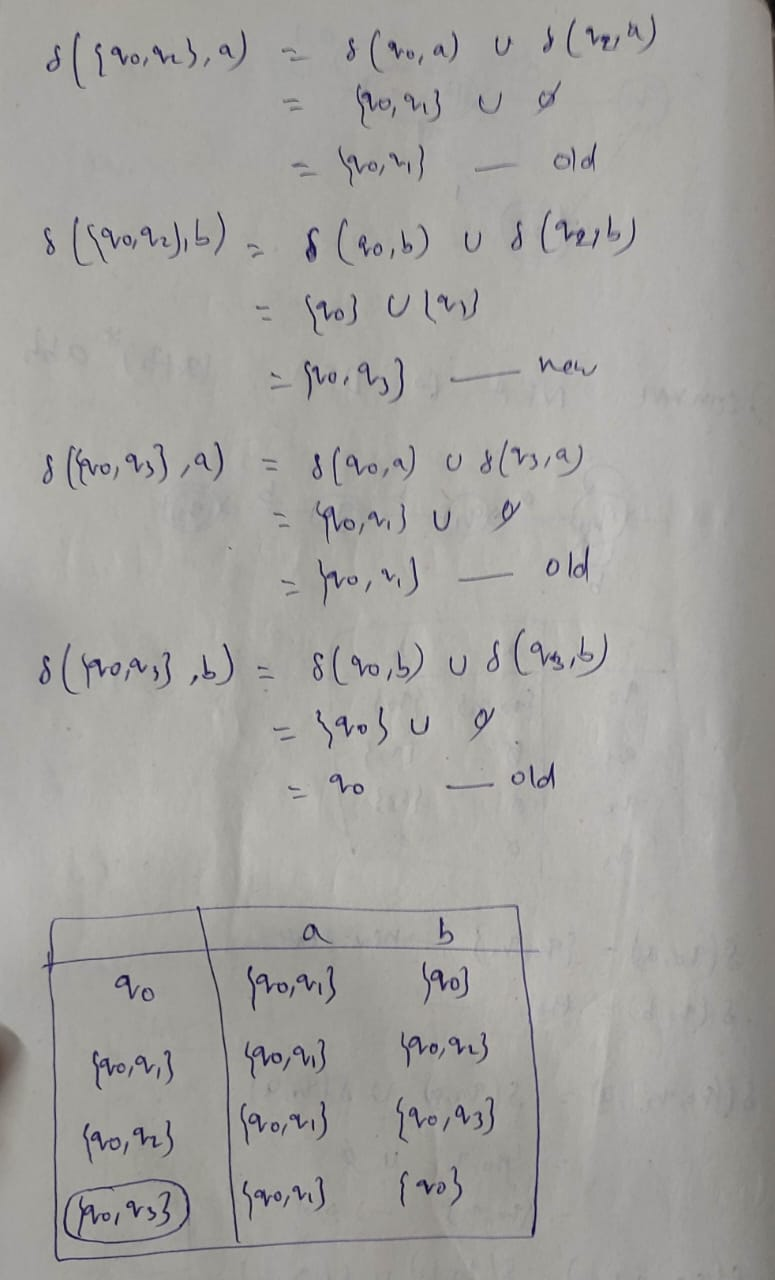 δ({q0,q2},a) = δ(q0,a) ∪ δ(q2,a)
= {q0,q1} ∪ ∅
= {q0,q1} — old
δ({q0,q2},b) = δ(q0,b) ∪ δ(q2,b)
= {q0} ∪ {q3}
= {q0,q3} — new
δ({q0,q3},a) = δ(q0,a) ∪ δ(q3,a)
= {q0,q1} ∪ ∅
= {q0,q1} — old
δ({q0,q3},b) = δ(q0,b) ∪ δ(q3,b)
= {q0} ∪ ∅
= q0 — old
a b
q0 {q0,q1} {q0}
{q0,q1} {q0,q1} {q0,q2}
{q0,q2} {q0,q1} {q0,q3}
{q0,q3} {q0,q1} {q0}